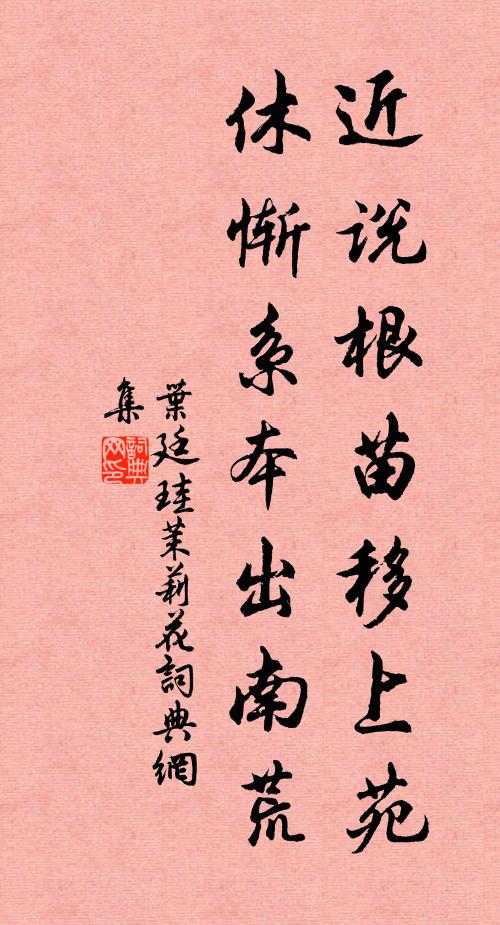 近說根苗移上苑
休慚系本出南荒
葉廷珪茉莉花詞典網
集
詞典
网印